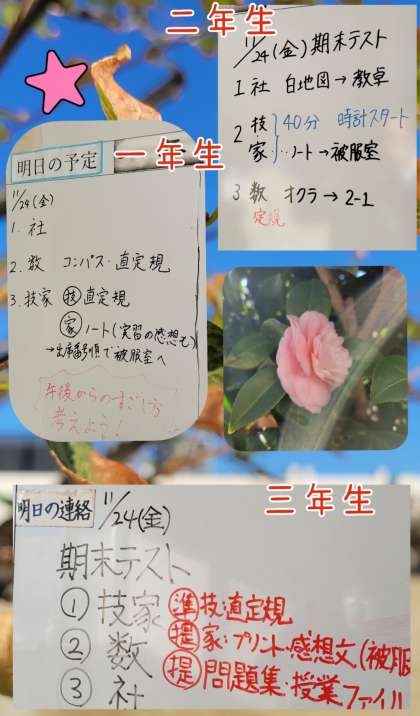 二年生
11/24(金)期末テスト
1 社 白地図→教卓
2 技 40分 時計スタート
家 ノート→被服室
3 数 オクラ→2-1
定規
一年生
明日の予定
11/24(金)
1. 社
2. 数 コンパス・直定規
3. 技家 技 直定規
家 ノート(実習の感想も)
→出席番号順で被服室へ
午後からのすごし方
考えよう!
三年生
明日の連絡
11/24(金)
期末テスト
① 技家 準 技:直定規
② 数 提 家:プリント・感想文(被服
③ 社 提 問題集・授業ファイル